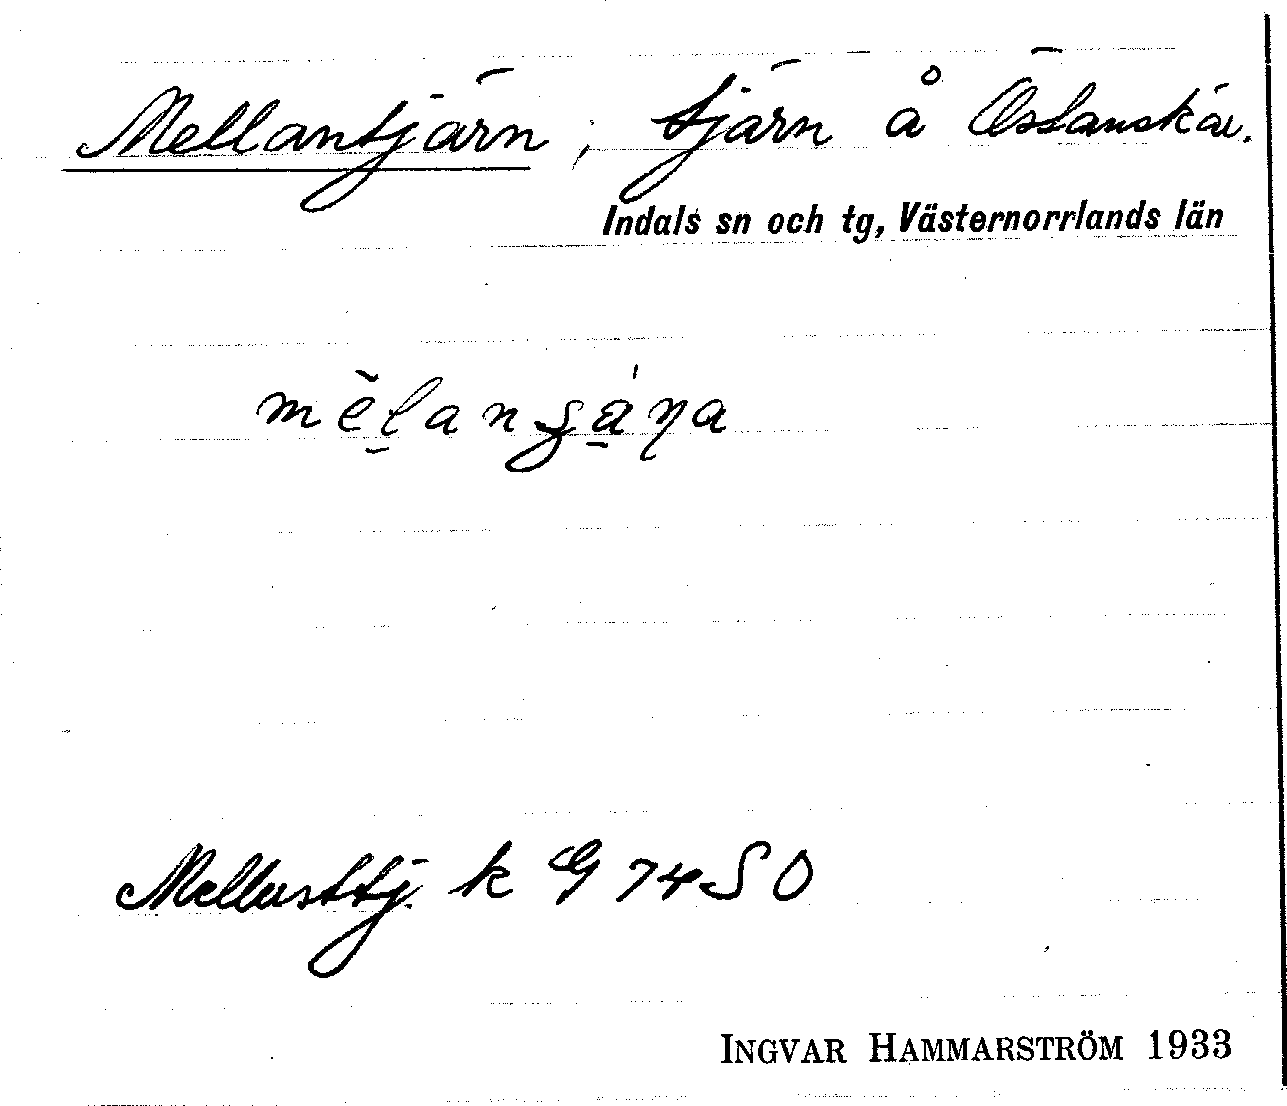 Mellantjärn, tjärn å Östanskär.
Indals sn och tg, Västernorrlands län
k G 74 S O
INGVAR HAMMARSTRÖM 1933